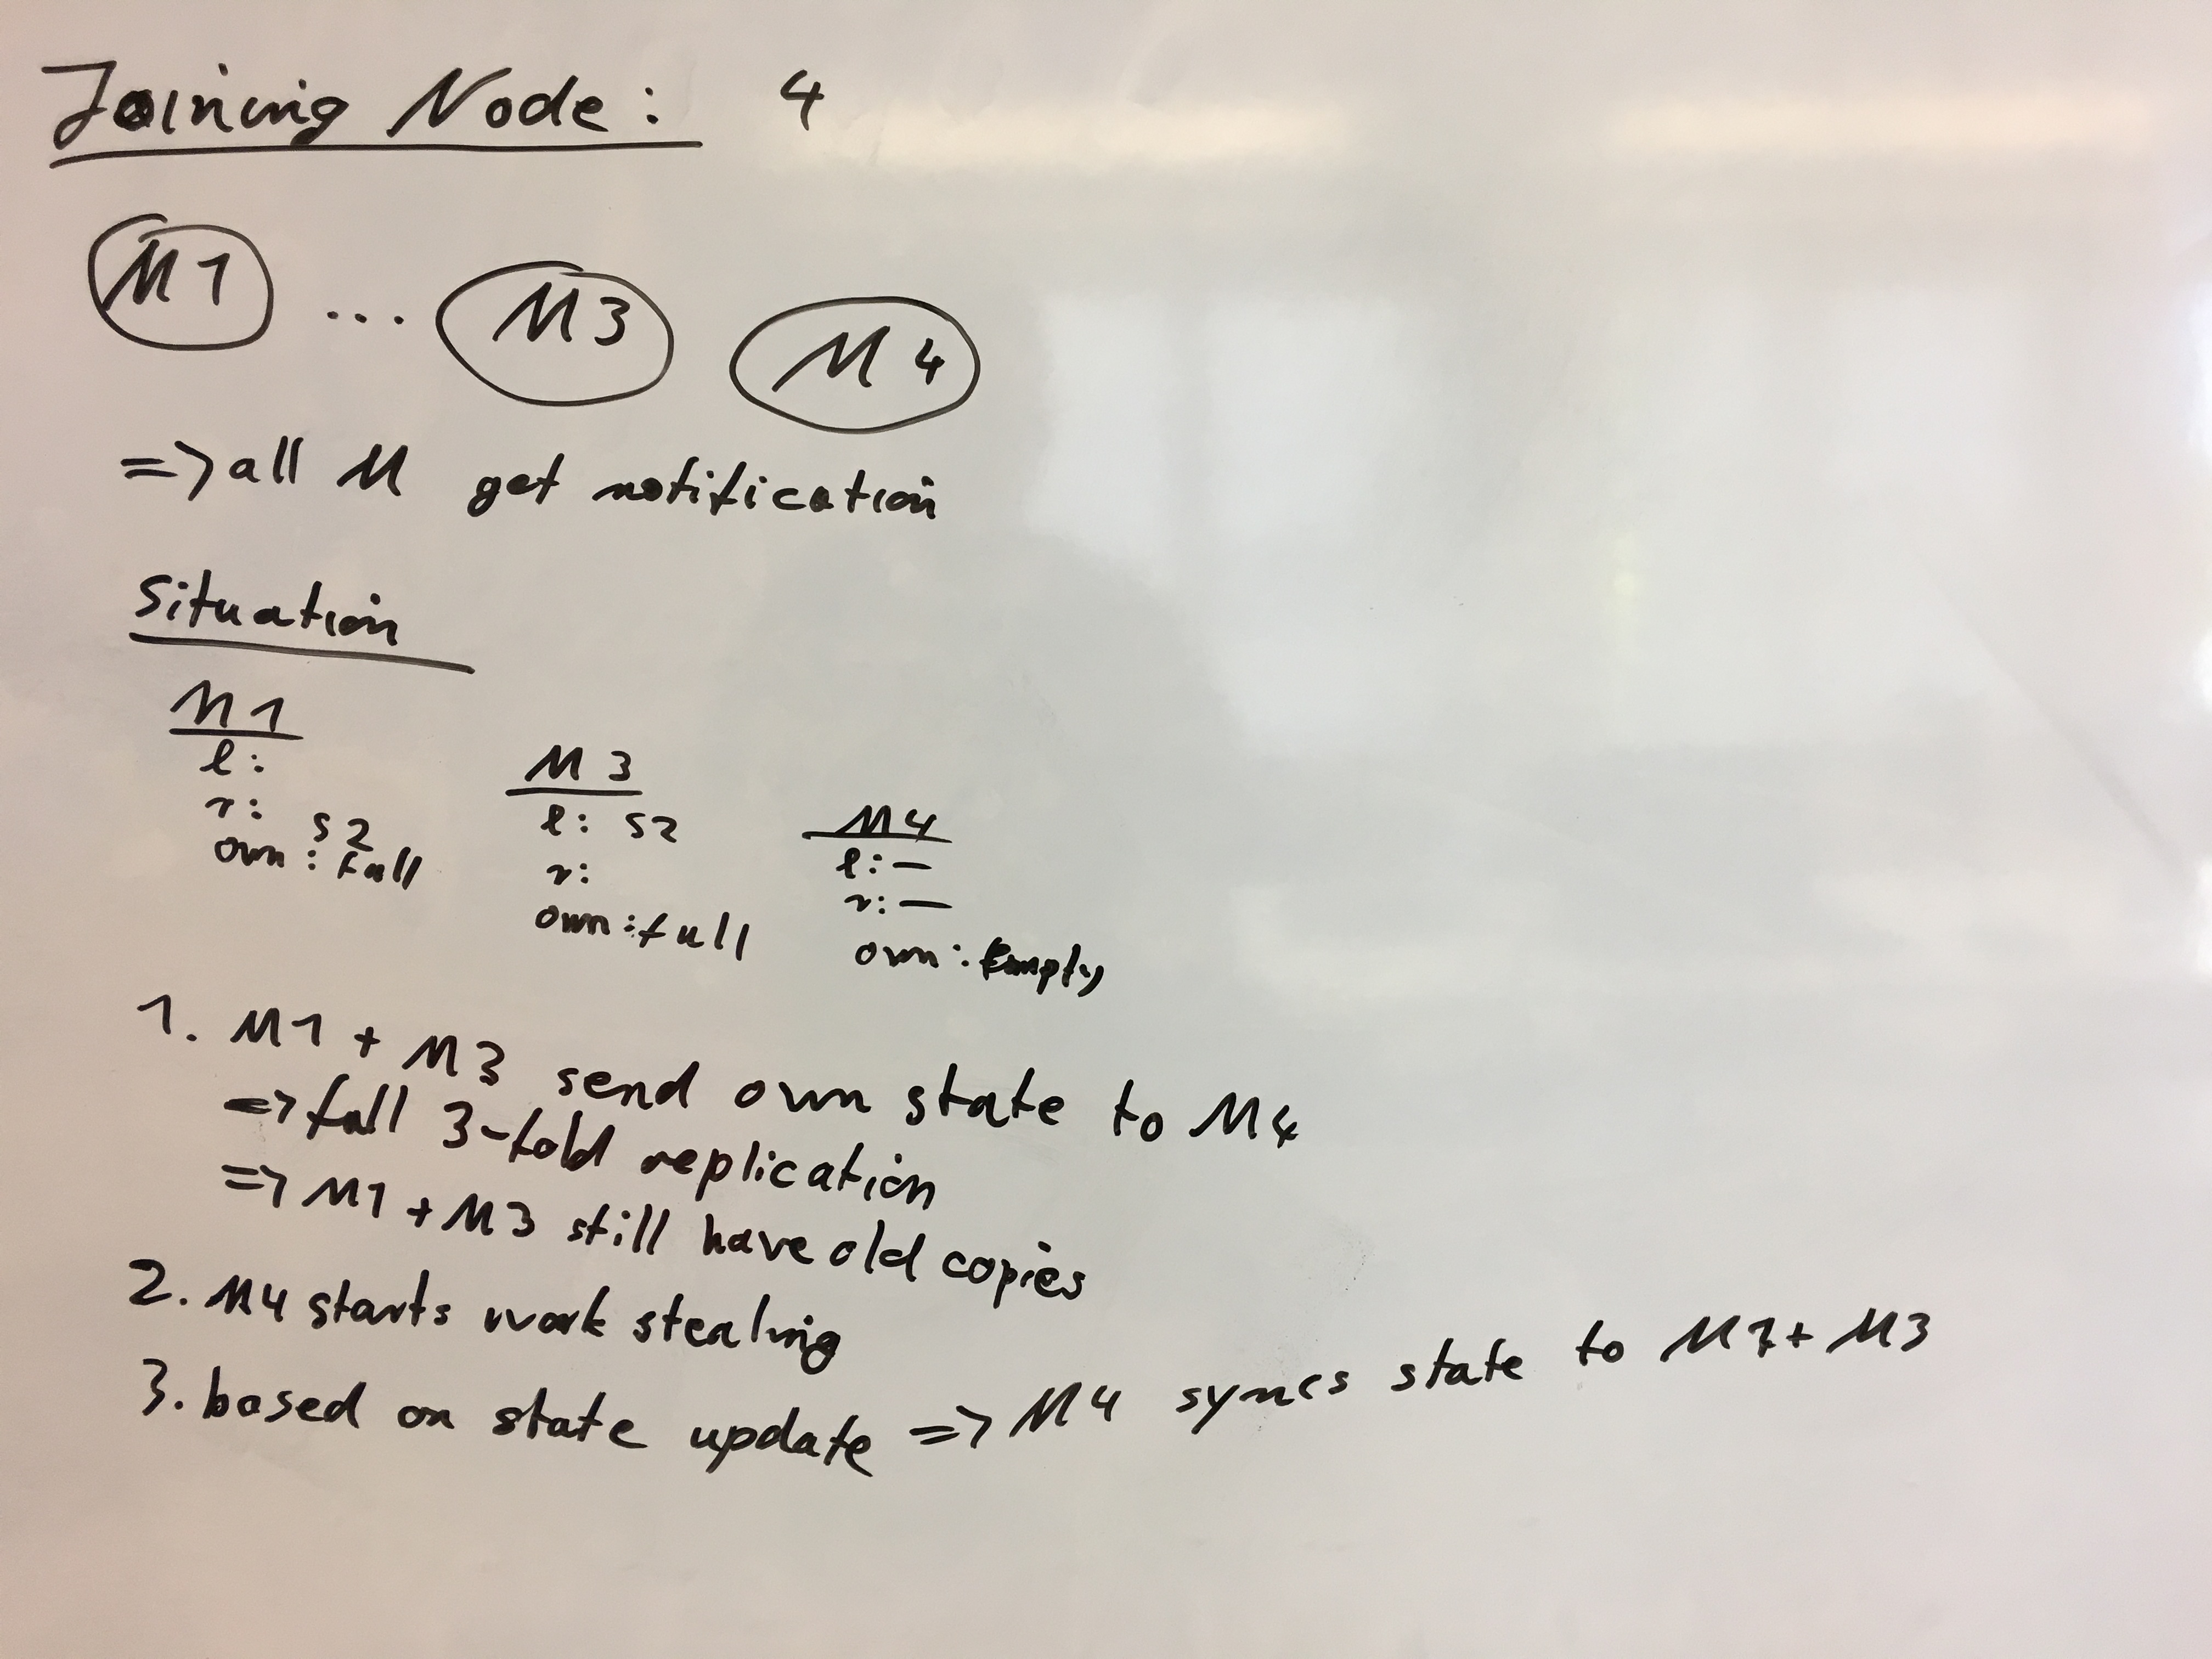 Joining Node: 4
M1 ... M3 M4
=> all M get notification
Situation
M1
l:
r: S2
own: full
M3
l: S2
r:
own: full
M4
l: —
r: —
own: Empty
1. M1 + M3 send own state to M4
=> full 3-fold replication
=> M1 + M3 still have old copies
2. M4 starts work stealing
3. based on state update => M4 syncs state to M1 + M3